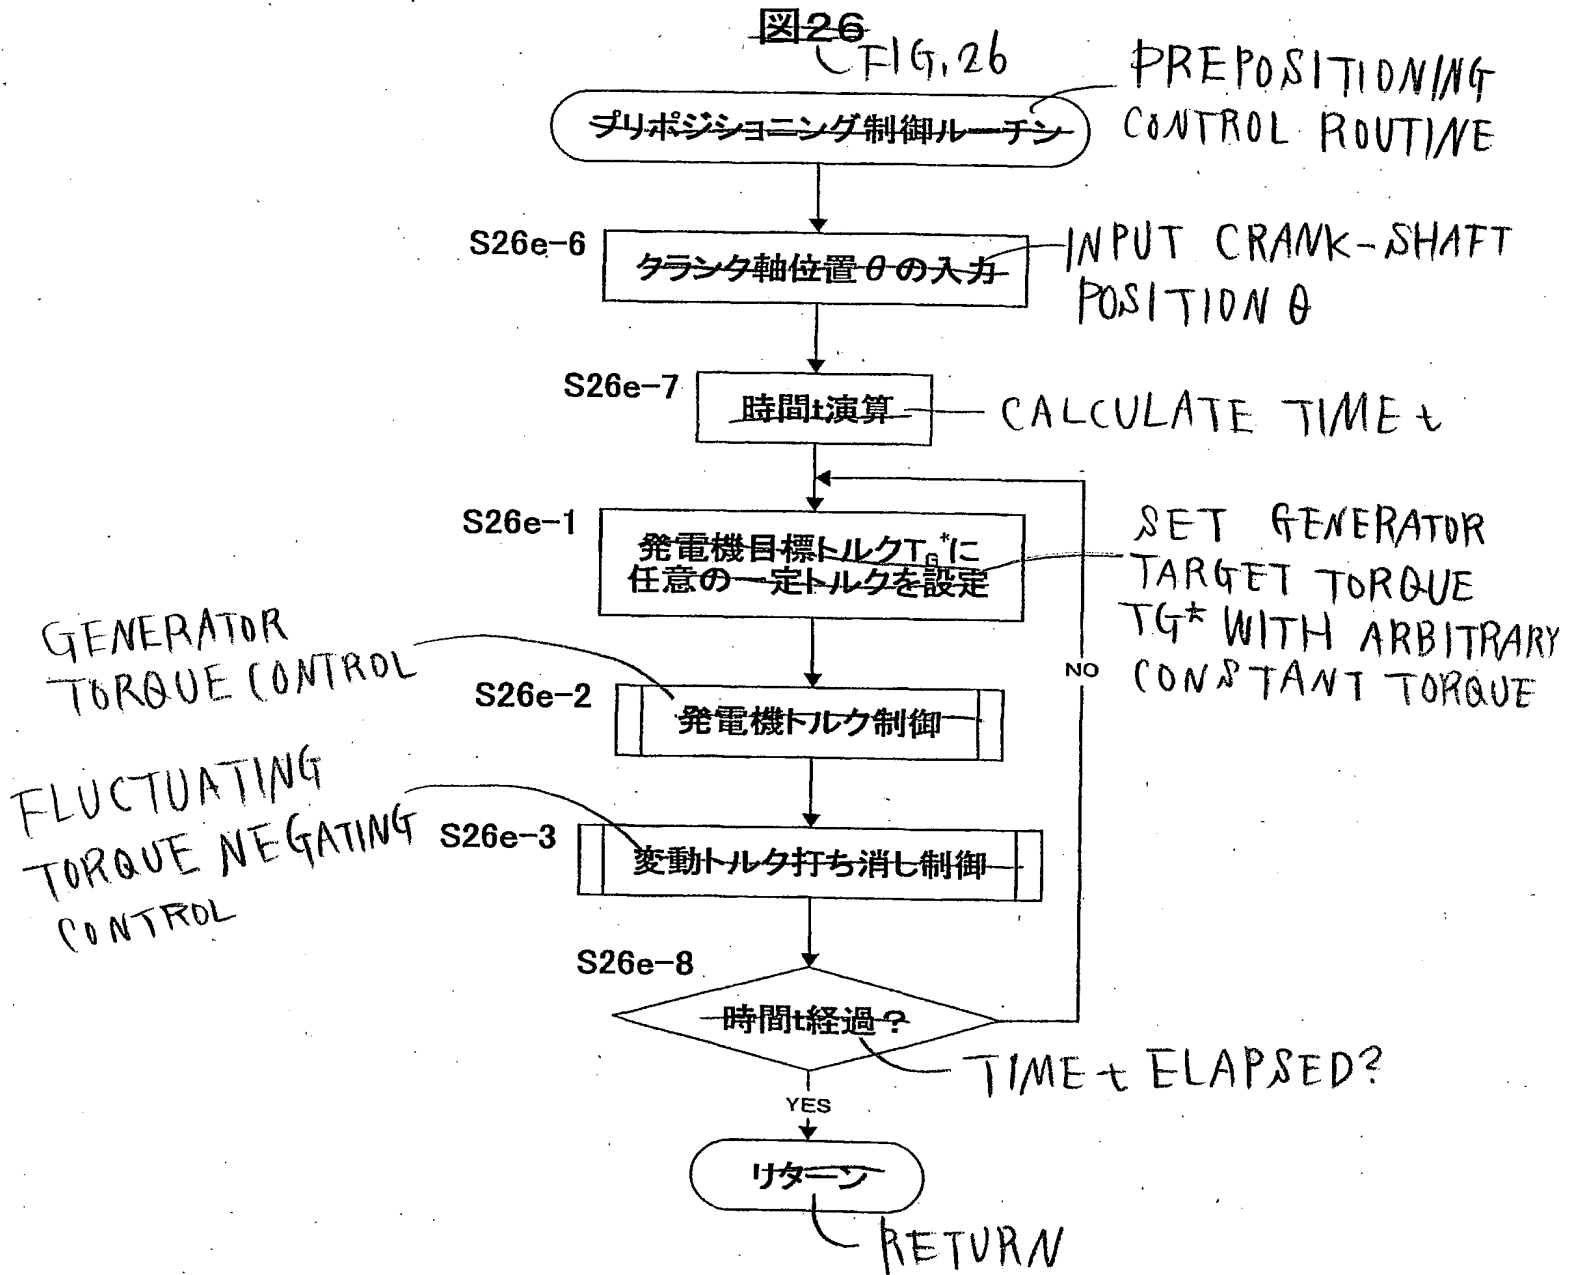 図26
FIG. 26
プリポジショニング制御ルーチン
PREPOSITIONING
CONTROL ROUTINE
S26e-6
クランク軸位置θの入力
INPUT CRANK-SHAFT
POSITION θ
S26e-7
時間t演算
CALCULATE TIME t
S26e-1
発電機目標トルクTG*に
任意の一定トルクを設定
SET GENERATOR
TARGET TORQUE
TG* WITH ARBITRARY
CONSTANT TORQUE
NO
GENERATOR
TORQUE CONTROL
S26e-2
発電機トルク制御
FLUCTUATING
TORQUE NEGATING
CONTROL
S26e-3
変動トルク打ち消し制御
S26e-8
時間t経過?
TIME t ELAPSED?
YES
リターン
RETURN